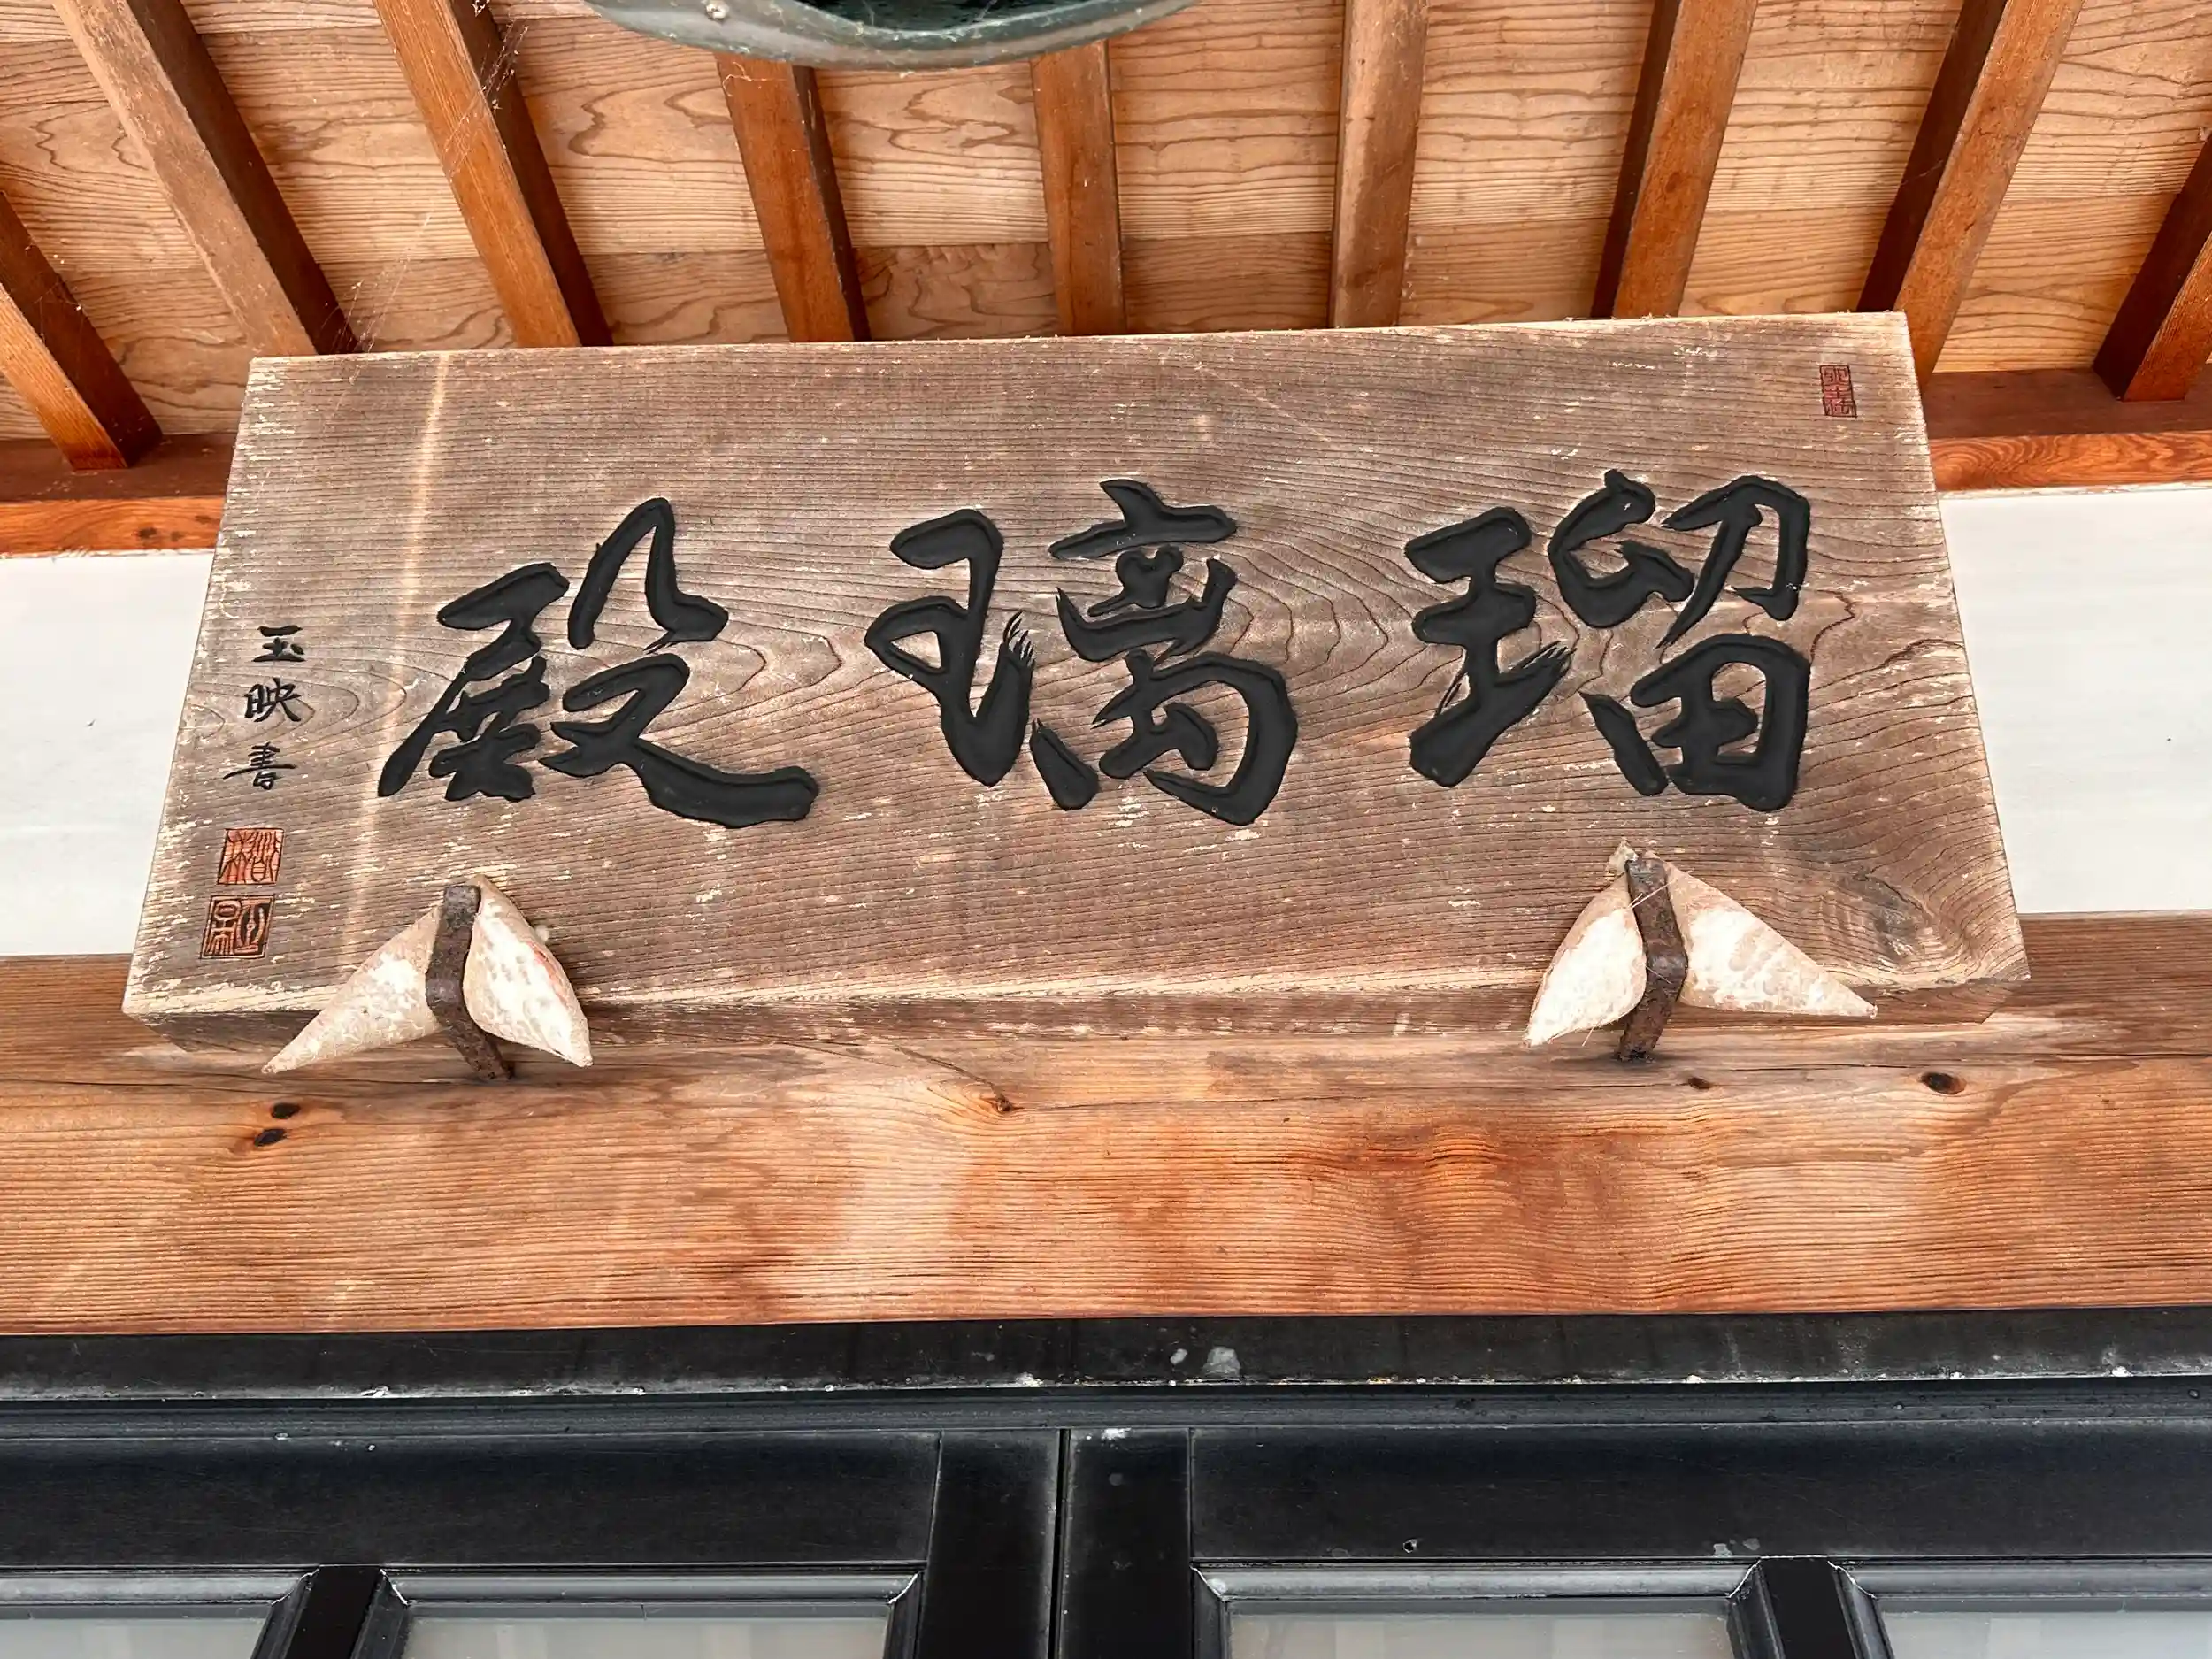 瑠璃殿
玉映書